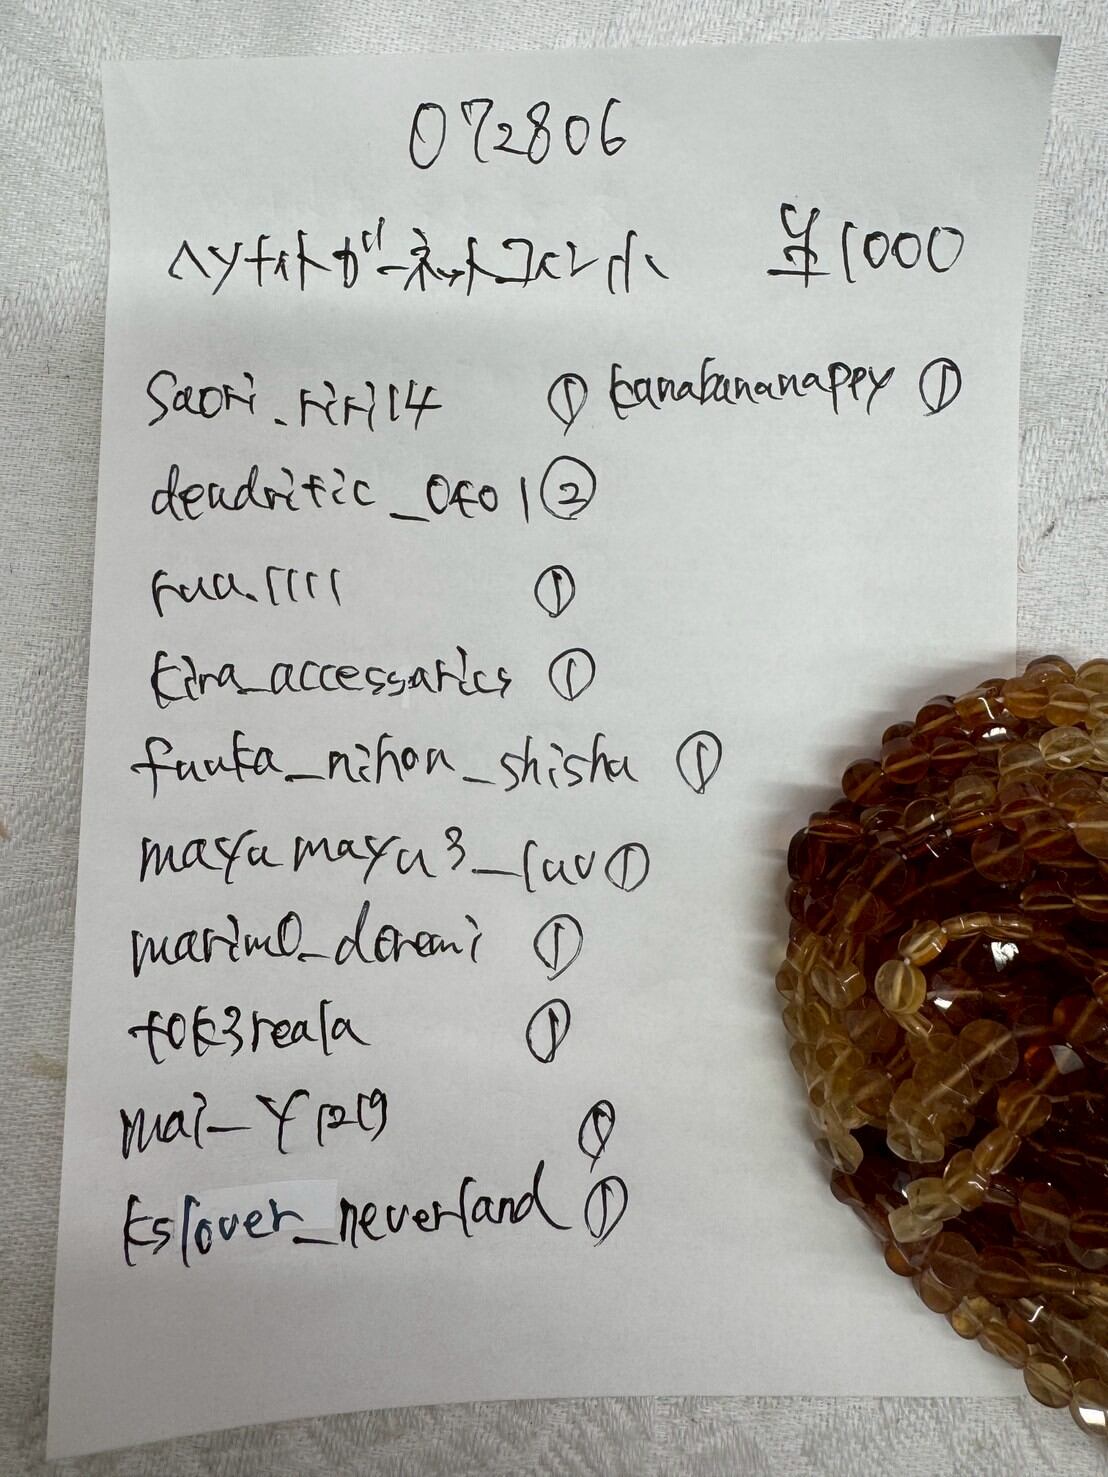 072806
ヘソナイトガーネットコイン小 ¥1000
Saori_riri14 ① kanabananappy ①
dendritic_0401 ②
ruu.1111 ①
kira_accessaries ①
fuuka_nihon_shisha ①
mayumayu3_luv ①
marimo_doremi ①
tok3reala ①
mai_y1219 ①
kslover_neverland ①